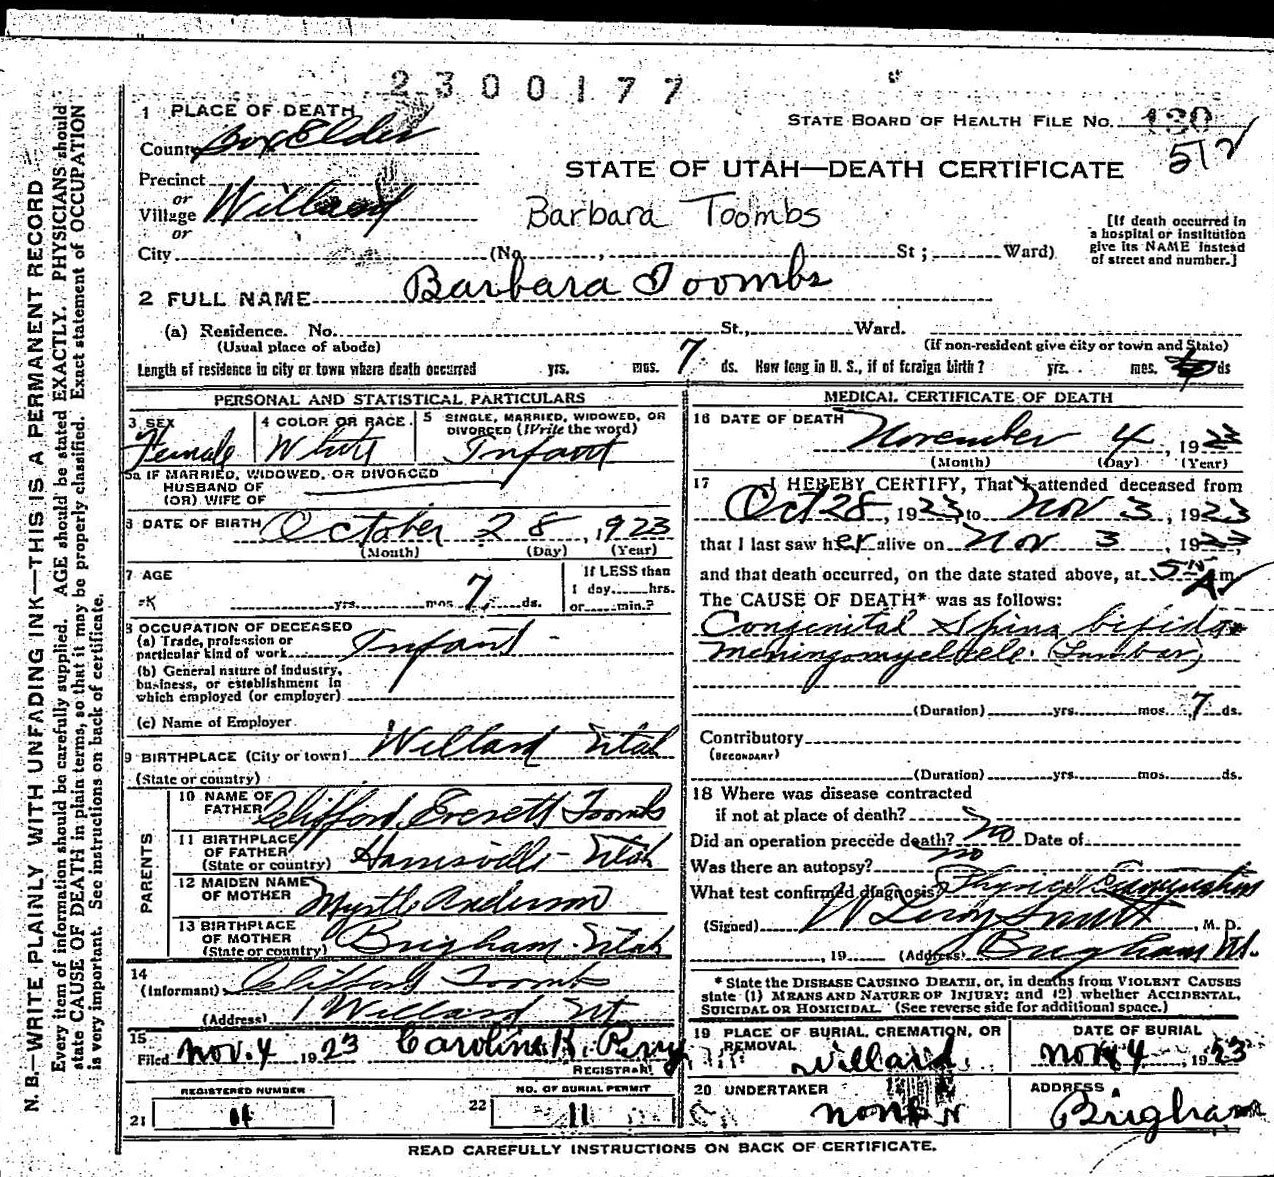 2300177
1 PLACE OF DEATH
STATE BOARD OF HEALTH FILE No. 130
County Box Elder
512
STATE OF UTAH—DEATH CERTIFICATE
Precinct
or
Village Willard
Barbara Toombs
or
City (No. St; Ward)
[If death occurred in
a hospital or institution
give its NAME instead
of street and number.]
2 FULL NAME Barbara Toombs
(a) Residence. No. St., Ward.
(Usual place of abode) (If non-resident give city or town and State)
Length of residence in city or town where death occurred yrs. mos. 7 ds. How long in U. S., if of foreign birth? yrs. mos. ds
PERSONAL AND STATISTICAL PARTICULARS
3 SEX Female
4 COLOR OR RACE White
5 SINGLE, MARRIED, WIDOWED, OR
DIVORCED (Write the word)
Infant
5a IF MARRIED, WIDOWED, OR DIVORCED
HUSBAND OF
(OR) WIFE OF
6 DATE OF BIRTH October 28, 1923
(Month) (Day) (Year)
7 AGE
yrs. mos. 7 ds.
If LESS than
1 day hrs.
or min.?
8 OCCUPATION OF DECEASED
(a) Trade, profession or
particular kind of work Infant
(b) General nature of industry,
business, or establishment in
which employed (or employer)
(c) Name of Employer
9 BIRTHPLACE (City or town) Willard Utah
(State or country)
PARENTS
10 NAME OF
FATHER Clifford Everett Toombs
11 BIRTHPLACE
OF FATHER
(State or country) Harrisville - Utah
12 MAIDEN NAME
OF MOTHER Myrtle Anderson
13 BIRTHPLACE
OF MOTHER
(State or country) Brigham - Utah
14
(Informant) Clifford Toombs
(Address) Willard Ut
15
Filed Nov. 4 1923 Caroline K. Perry
REGISTRAR
REGISTERED NUMBER
21 11
NO. OF BURIAL PERMIT
22 11
MEDICAL CERTIFICATE OF DEATH
16 DATE OF DEATH November 4, 1923
(Month) (Day) (Year)
17 I HEREBY CERTIFY, That I attended deceased from
Oct 28, 1923, to Nov 3, 1923
that I last saw her alive on Nov 3, 1923,
and that death occurred, on the date stated above, at 5 A m
The CAUSE OF DEATH* was as follows:
Congenital Spina bifida
meningomyelocele (Lumbar)
(Duration) yrs. mos. 7 ds.
Contributory
(SECONDARY)
(Duration) yrs. mos. ds.
18 Where was disease contracted
if not at place of death?
Did an operation precede death? No Date of
Was there an autopsy? no
What test confirmed diagnosis? Physical Examination
(Signed) W Leroy Smith, M. D.
, 19 (Address) Brigham Ut.
* State the DISEASE CAUSING DEATH, or, in deaths from VIOLENT CAUSES
state (1) MEANS AND NATURE OF INJURY; and (2) whether ACCIDENTAL,
SUICIDAL OR HOMICIDAL. (See reverse side for additional space.)
19 PLACE OF BURIAL, CREMATION, OR
REMOVAL
Willard
DATE OF BURIAL
Nov 4 1923
20 UNDERTAKER
none
ADDRESS
Brigham
READ CAREFULLY INSTRUCTIONS ON BACK OF CERTIFICATE.
N. B.—WRITE PLAINLY WITH UNFADING INK—THIS IS A PERMANENT RECORD
Every item of information should be carefully supplied. AGE should be stated EXACTLY. PHYSICIANS should
state CAUSE OF DEATH in plain terms, so that it may be properly classified. Exact statement of OCCUPATION
is very important. See instructions on back of certificate.